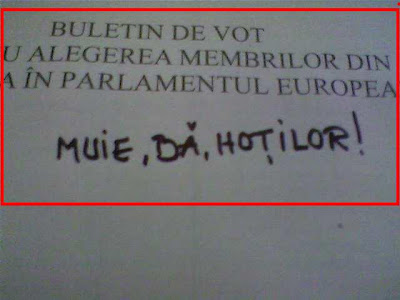 BULETIN DE VOT
U ALEGEREA MEMBRILOR DIN
A ÎN PARLAMENTUL EUROPEA
MUIE, DĂ, HOȚILOR!